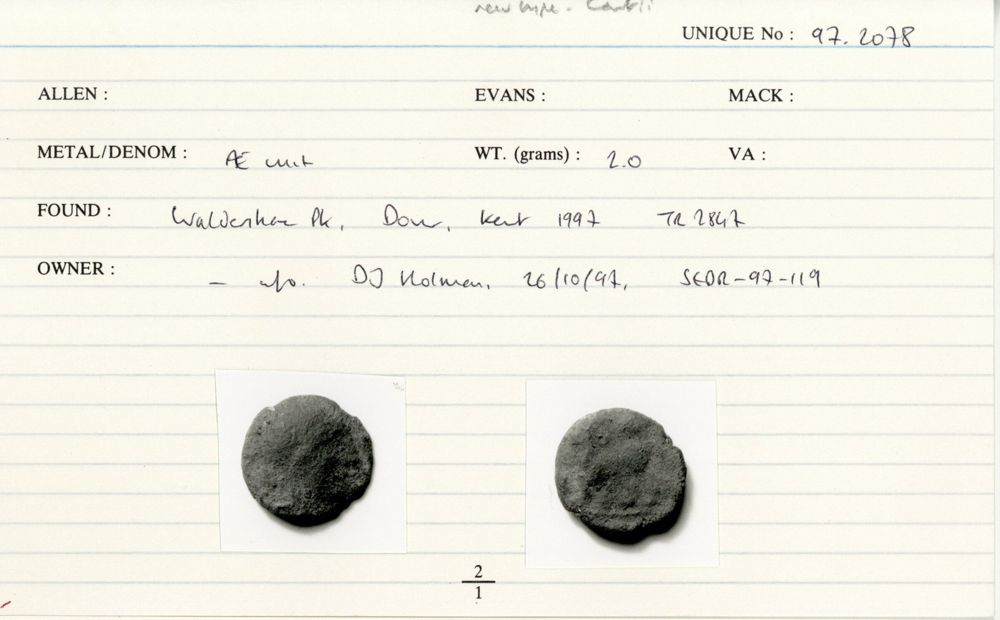 new type -
UNIQUE No : 97.2078
ALLEN : EVANS : MACK :
METAL/DENOM : Æ unit WT. (grams) : 2.0 VA :
FOUND : Waldershare Pk, Dover, Kent 1997 TR 2847
OWNER : — DJ Holman, 26/10/97, SEDR-97-119
2
1